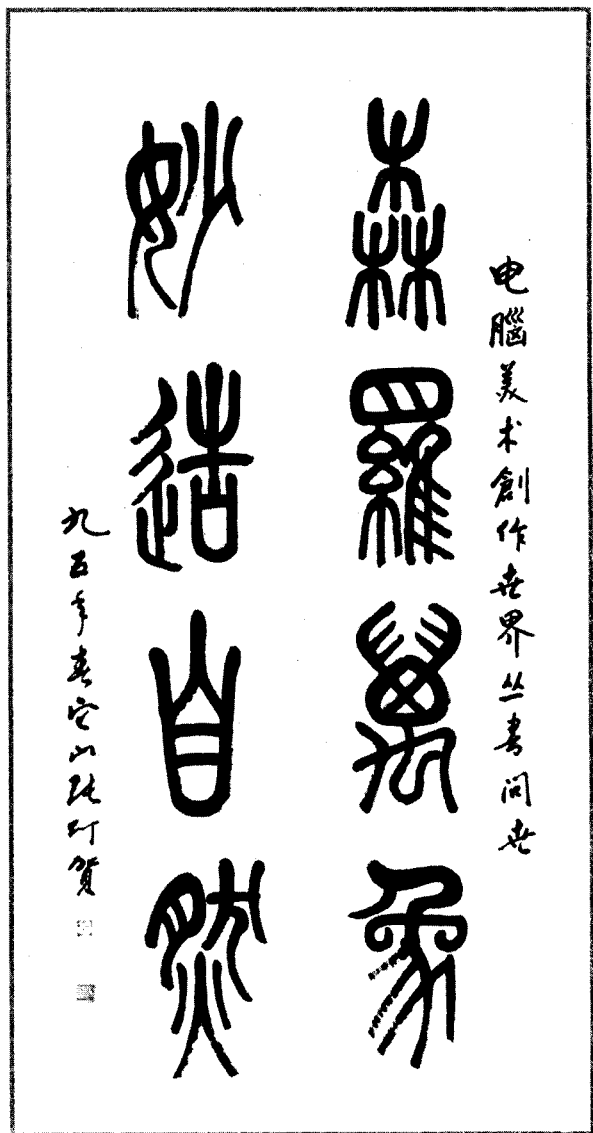 电腦美术創作世界丛书问世
森羅萬象
妙造自然
九五年春 山 賀